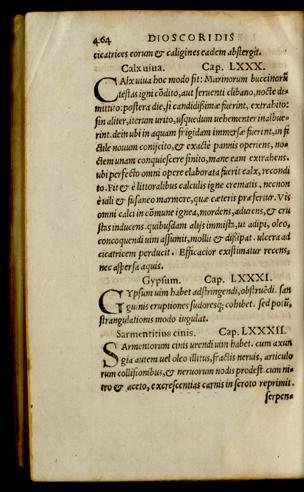 464 DIOSCORIDIS
cicatrices eorum & caligines eadem abstergit.
Calx uiua. Cap. LXXX.
CAlx uiua hoc modo fit: Marinorum buccinorũ
testas igni cõdito, aut feruenti clibano, nocte di-
mittito: postera die, si candidißimæ fuerint, extrahito:
sin aliter, iterum urito, usquedum uehementer inalbue-
rint. dein ubi in aquam frigidam immersæ fuerint, in fi
ctile nouum conijcito, & exactè pannis operiens, no-
ctem unam conquiescere sinito, mane eam extrahens.
ubi perfecto omni opere elaborata fuerit calx, recondi
to. Fit & è littoralibus calculis igne crematis. necnon
è uili & fusaneo marmore, quæ cæteris præfertur. Vis
omni calci in cõmune ignea, mordens, adurens, & cru
stas inducens. quibusdam alijs immista, ut adipi, oleo,
concoquendi uim assumit, mollit & dißipat. ulcera ad
cicatricem perducit. Efficacior existimatur recens,
nec aspersa aquis.
Gypsum. Cap. LXXXI.
GYpsum uim habet adstringendi, obstruẽdi. san
guinis eruptiones sudoresq́; cohibet. sed potũ,
strangulationis modo iugulat.
Sarmentitius cinis. Cap. LXXXII.
SArmentorum cinis urendi uim habet. cum axun
gia autem uel oleo illitus, fractis neruis, articulo
rum collisionibus, & neruorum nodis prodest. cum ni-
tro & aceto, excrescentias carnis in scroto reprimit.
serpen-